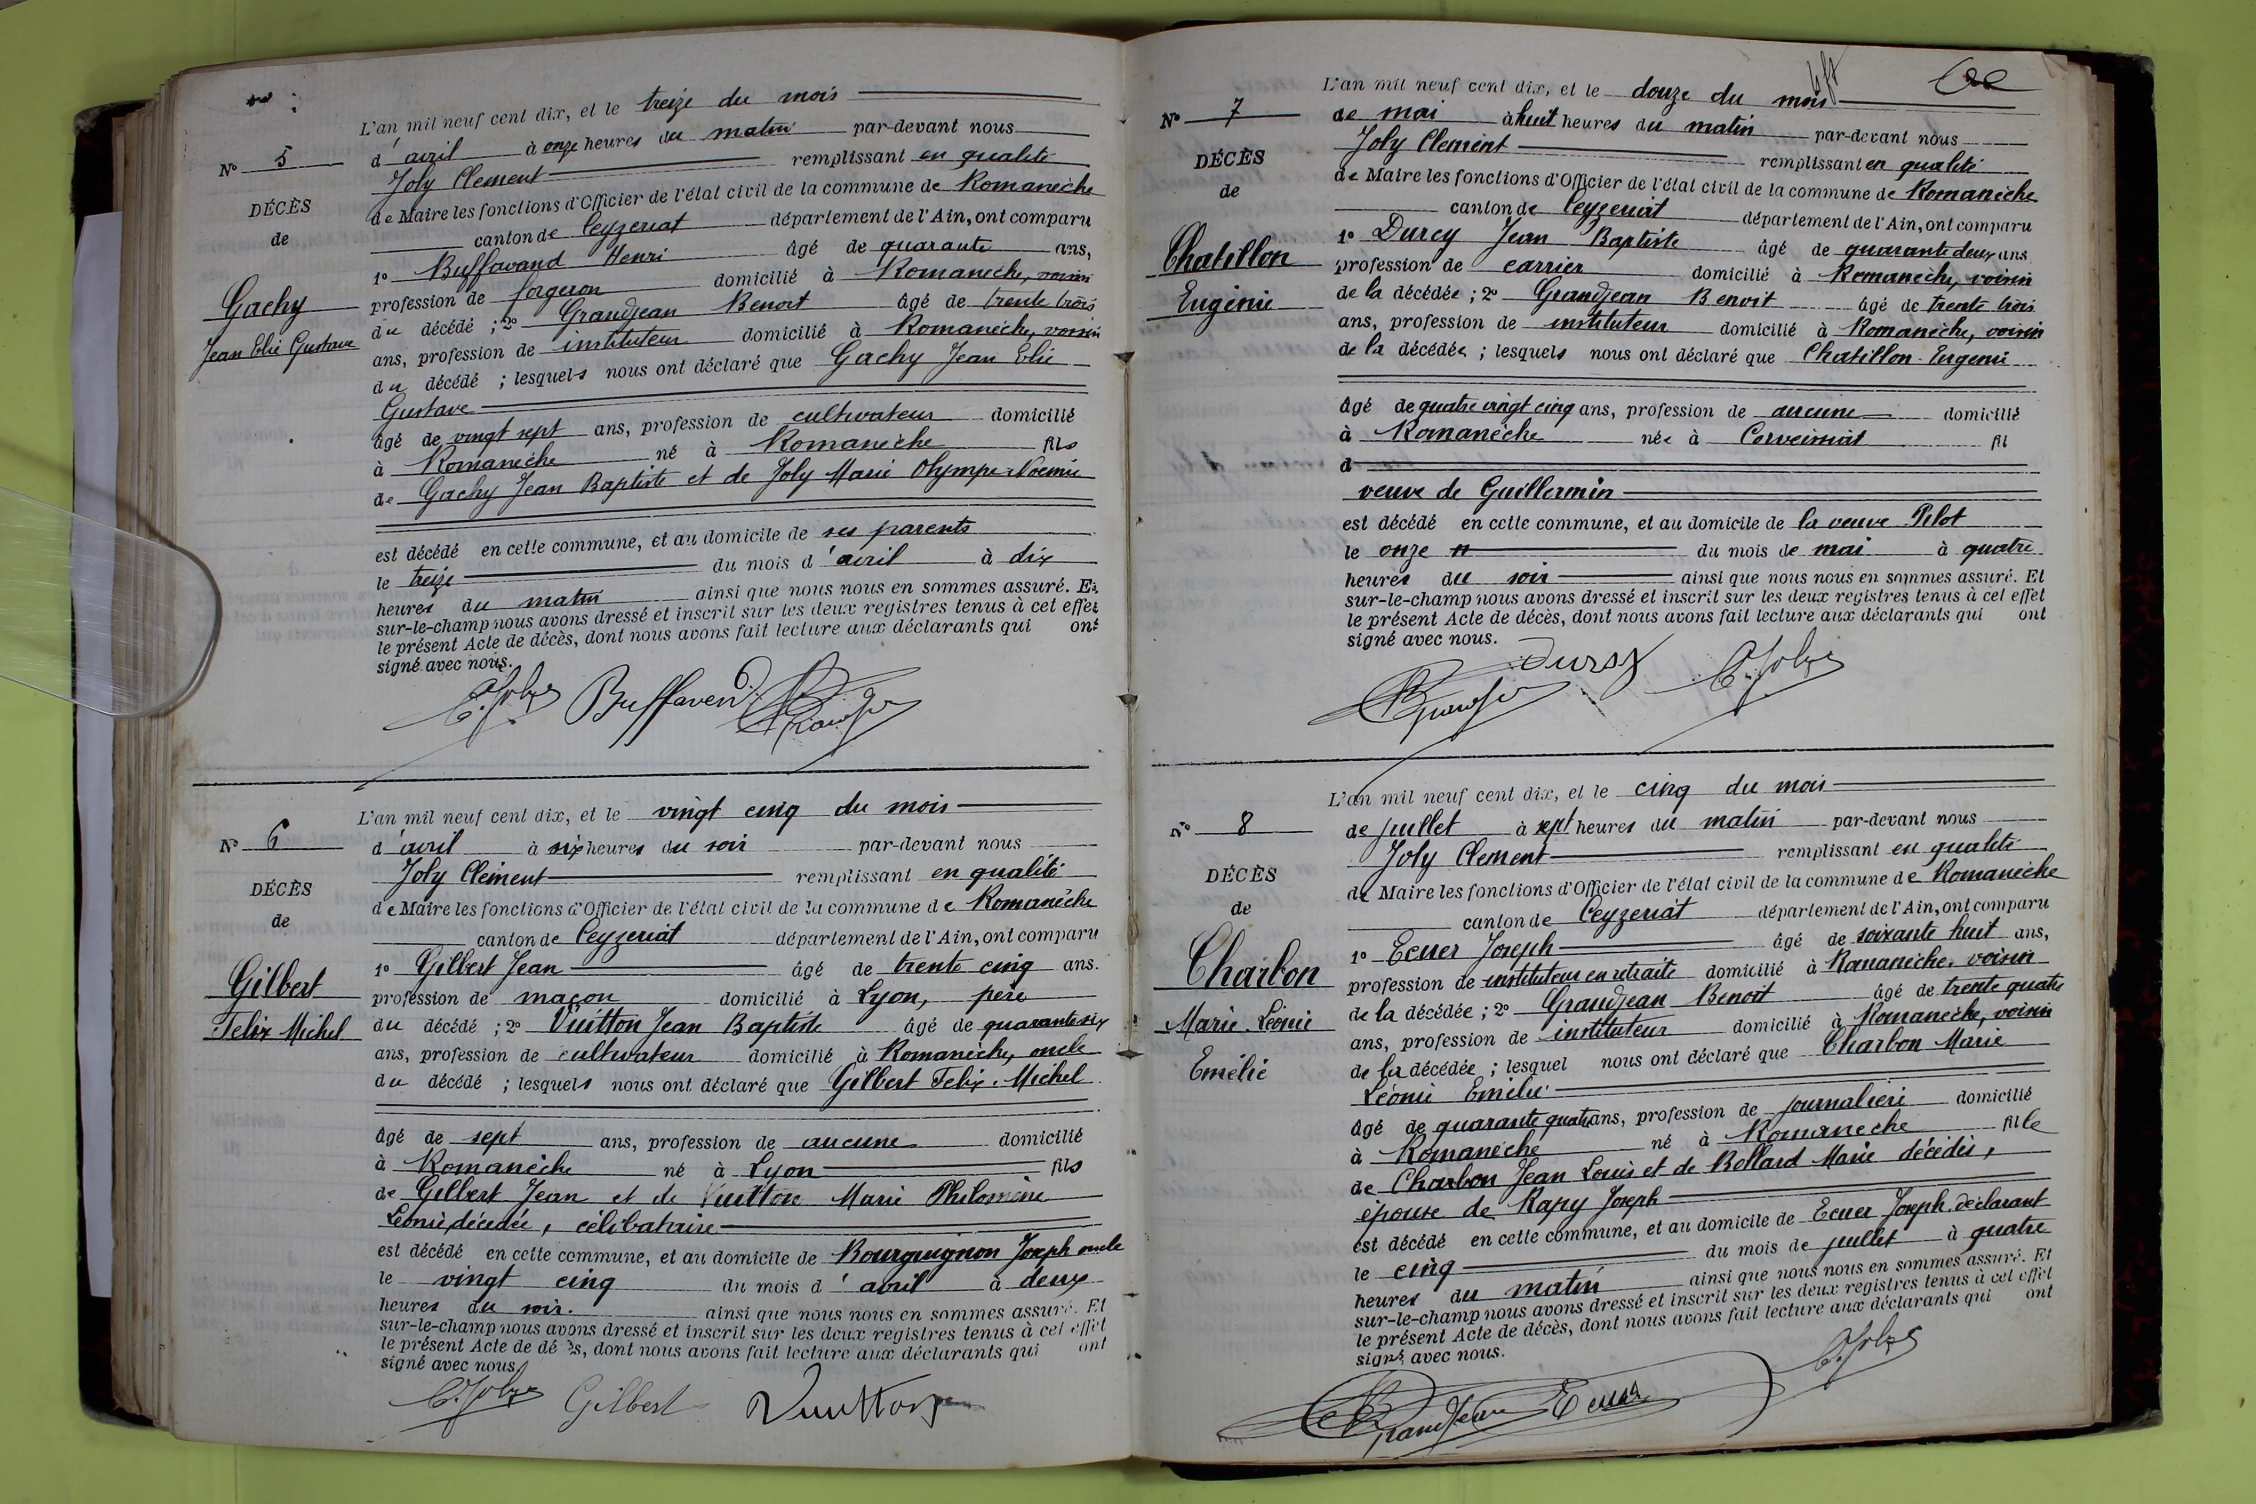 L'an mil neuf cent dix, et le treize du mois
No 5
d'avril à onze heures du matin par-devant nous
Joly Clément remplissant en qualité
DÉCÈS
de Maire les fonctions d'Officier de l'état civil de la commune de Romanèche
de
canton de Ceyzeriat département de l'Ain, ont comparu
1o Buffavand Henri âgé de quarante ans,
Gachy
profession de forgeron domicilié à Romanèche, voisin
Jean Elie Gustave
du décédé ; 2o Grandjean Benoit âgé de trente trois
ans, profession de instituteur domicilié à Romanèche, voisin
du décédé ; lesquels nous ont déclaré que Gachy Jean Elie
Gustave
âgé de vingt sept ans, profession de cultivateur domicilié
à Romanèche né à Romanèche fils
de Gachy Jean Baptiste et de Joly Marie Olympe Noémie
est décédé en cette commune, et au domicile de ses parents
le treize du mois d'avril à dix
heures du matin ainsi que nous nous en sommes assuré. Et
sur-le-champ nous avons dressé et inscrit sur les deux registres tenus à cet effet
le présent Acte de décès, dont nous avons fait lecture aux déclarants qui ont
signé avec nous.
C. Joly Buffavend
L'an mil neuf cent dix, et le vingt cinq du mois
No 6
d'avril à six heures du soir par-devant nous
Joly Clément remplissant en qualité
DÉCÈS
de Maire les fonctions d'Officier de l'état civil de la commune de Romanèche
de
canton de Ceyzeriat département de l'Ain, ont comparu
Gilbert
1o Gilbert Jean âgé de trente cinq ans.
profession de maçon domicilié à Lyon, père
Felix Michel
du décédé ; 2o Vuitton Jean Baptiste âgé de quarante six
ans, profession de cultivateur domicilié à Romanèche, oncle
du décédé ; lesquels nous ont déclaré que Gilbert Felix Michel
âgé de sept ans, profession de aucune domicilié
à Romanèche né à Lyon fils
de Gilbert Jean et de Vuitton Marie Philomène
Léonie décédée, célibataire
est décédé en cette commune, et au domicile de Bourguignon Joseph oncle
le vingt cinq du mois d'avril à deux
heures du soir. ainsi que nous nous en sommes assuré. Et
sur-le-champ nous avons dressé et inscrit sur les deux registres tenus à cet effet
le présent Acte de décès, dont nous avons fait lecture aux déclarants qui ont
signé avec nous
C. Joly Gilbert Vuitton
L'an mil neuf cent dix, et le douze du mois
No 7
de mai à huit heures du matin par-devant nous
Joly Clément remplissant en qualité
DÉCÈS
de Maire les fonctions d'Officier de l'état civil de la commune de Romanèche
de
canton de Ceyzeriat département de l'Ain, ont comparu
Chatillon
1o Durcy Jean Baptiste âgé de quarante deux ans
profession de carrier domicilié à Romanèche, voisin
Eugénie
de la décédée ; 2o Grandjean Benoit âgé de trente trois
ans, profession de instituteur domicilié à Romanèche, voisin
de la décédée ; lesquels nous ont déclaré que Chatillon Eugénie
âgé de quatre vingt cinq ans, profession de aucune domicilié
à Romanèche née à Corveissiat fil
d
veuve de Guillermin
est décédé en cette commune, et au domicile de la veuve Pilot
le onze du mois de mai à quatre
heures du soir ainsi que nous nous en sommes assuré. Et
sur-le-champ nous avons dressé et inscrit sur les deux registres tenus à cet effet
le présent Acte de décès, dont nous avons fait lecture aux déclarants qui ont
signé avec nous.
C. Joly
L'an mil neuf cent dix, et le cinq du mois
No 8
de juillet à sept heures du matin par-devant nous
Joly Clément remplissant en qualité
DÉCÈS
de Maire les fonctions d'Officier de l'état civil de la commune de Romanèche
de
canton de Ceyzeriat département de l'Ain, ont comparu
Charbon
1o Ecuer Joseph âgé de soixante huit ans,
profession de instituteur en retraite domicilié à Romanèche, voisin
Marie Léonie
de la décédée ; 2o Grandjean Benoit âgé de trente quatre
ans, profession de instituteur domicilié à Romanèche, voisin
Emélie
de la décédée ; lesquel nous ont déclaré que Charbon Marie
Léonie Emélie
âgé de quarante quatre ans, profession de journalière domicilié
à Romanèche né à Romanèche fille
de Charbon Jean Louis et de Bollard Marie décédés,
épouse de Rapy Joseph
est décédé en cette commune, et au domicile de Ecuer Joseph, déclarant
le cinq du mois de juillet à quatre
heures du matin ainsi que nous nous en sommes assuré. Et
sur-le-champ nous avons dressé et inscrit sur les deux registres tenus à cet effet
le présent Acte de décès, dont nous avons fait lecture aux déclarants qui ont
signé avec nous.
C. Joly
Grandjean Ecuer